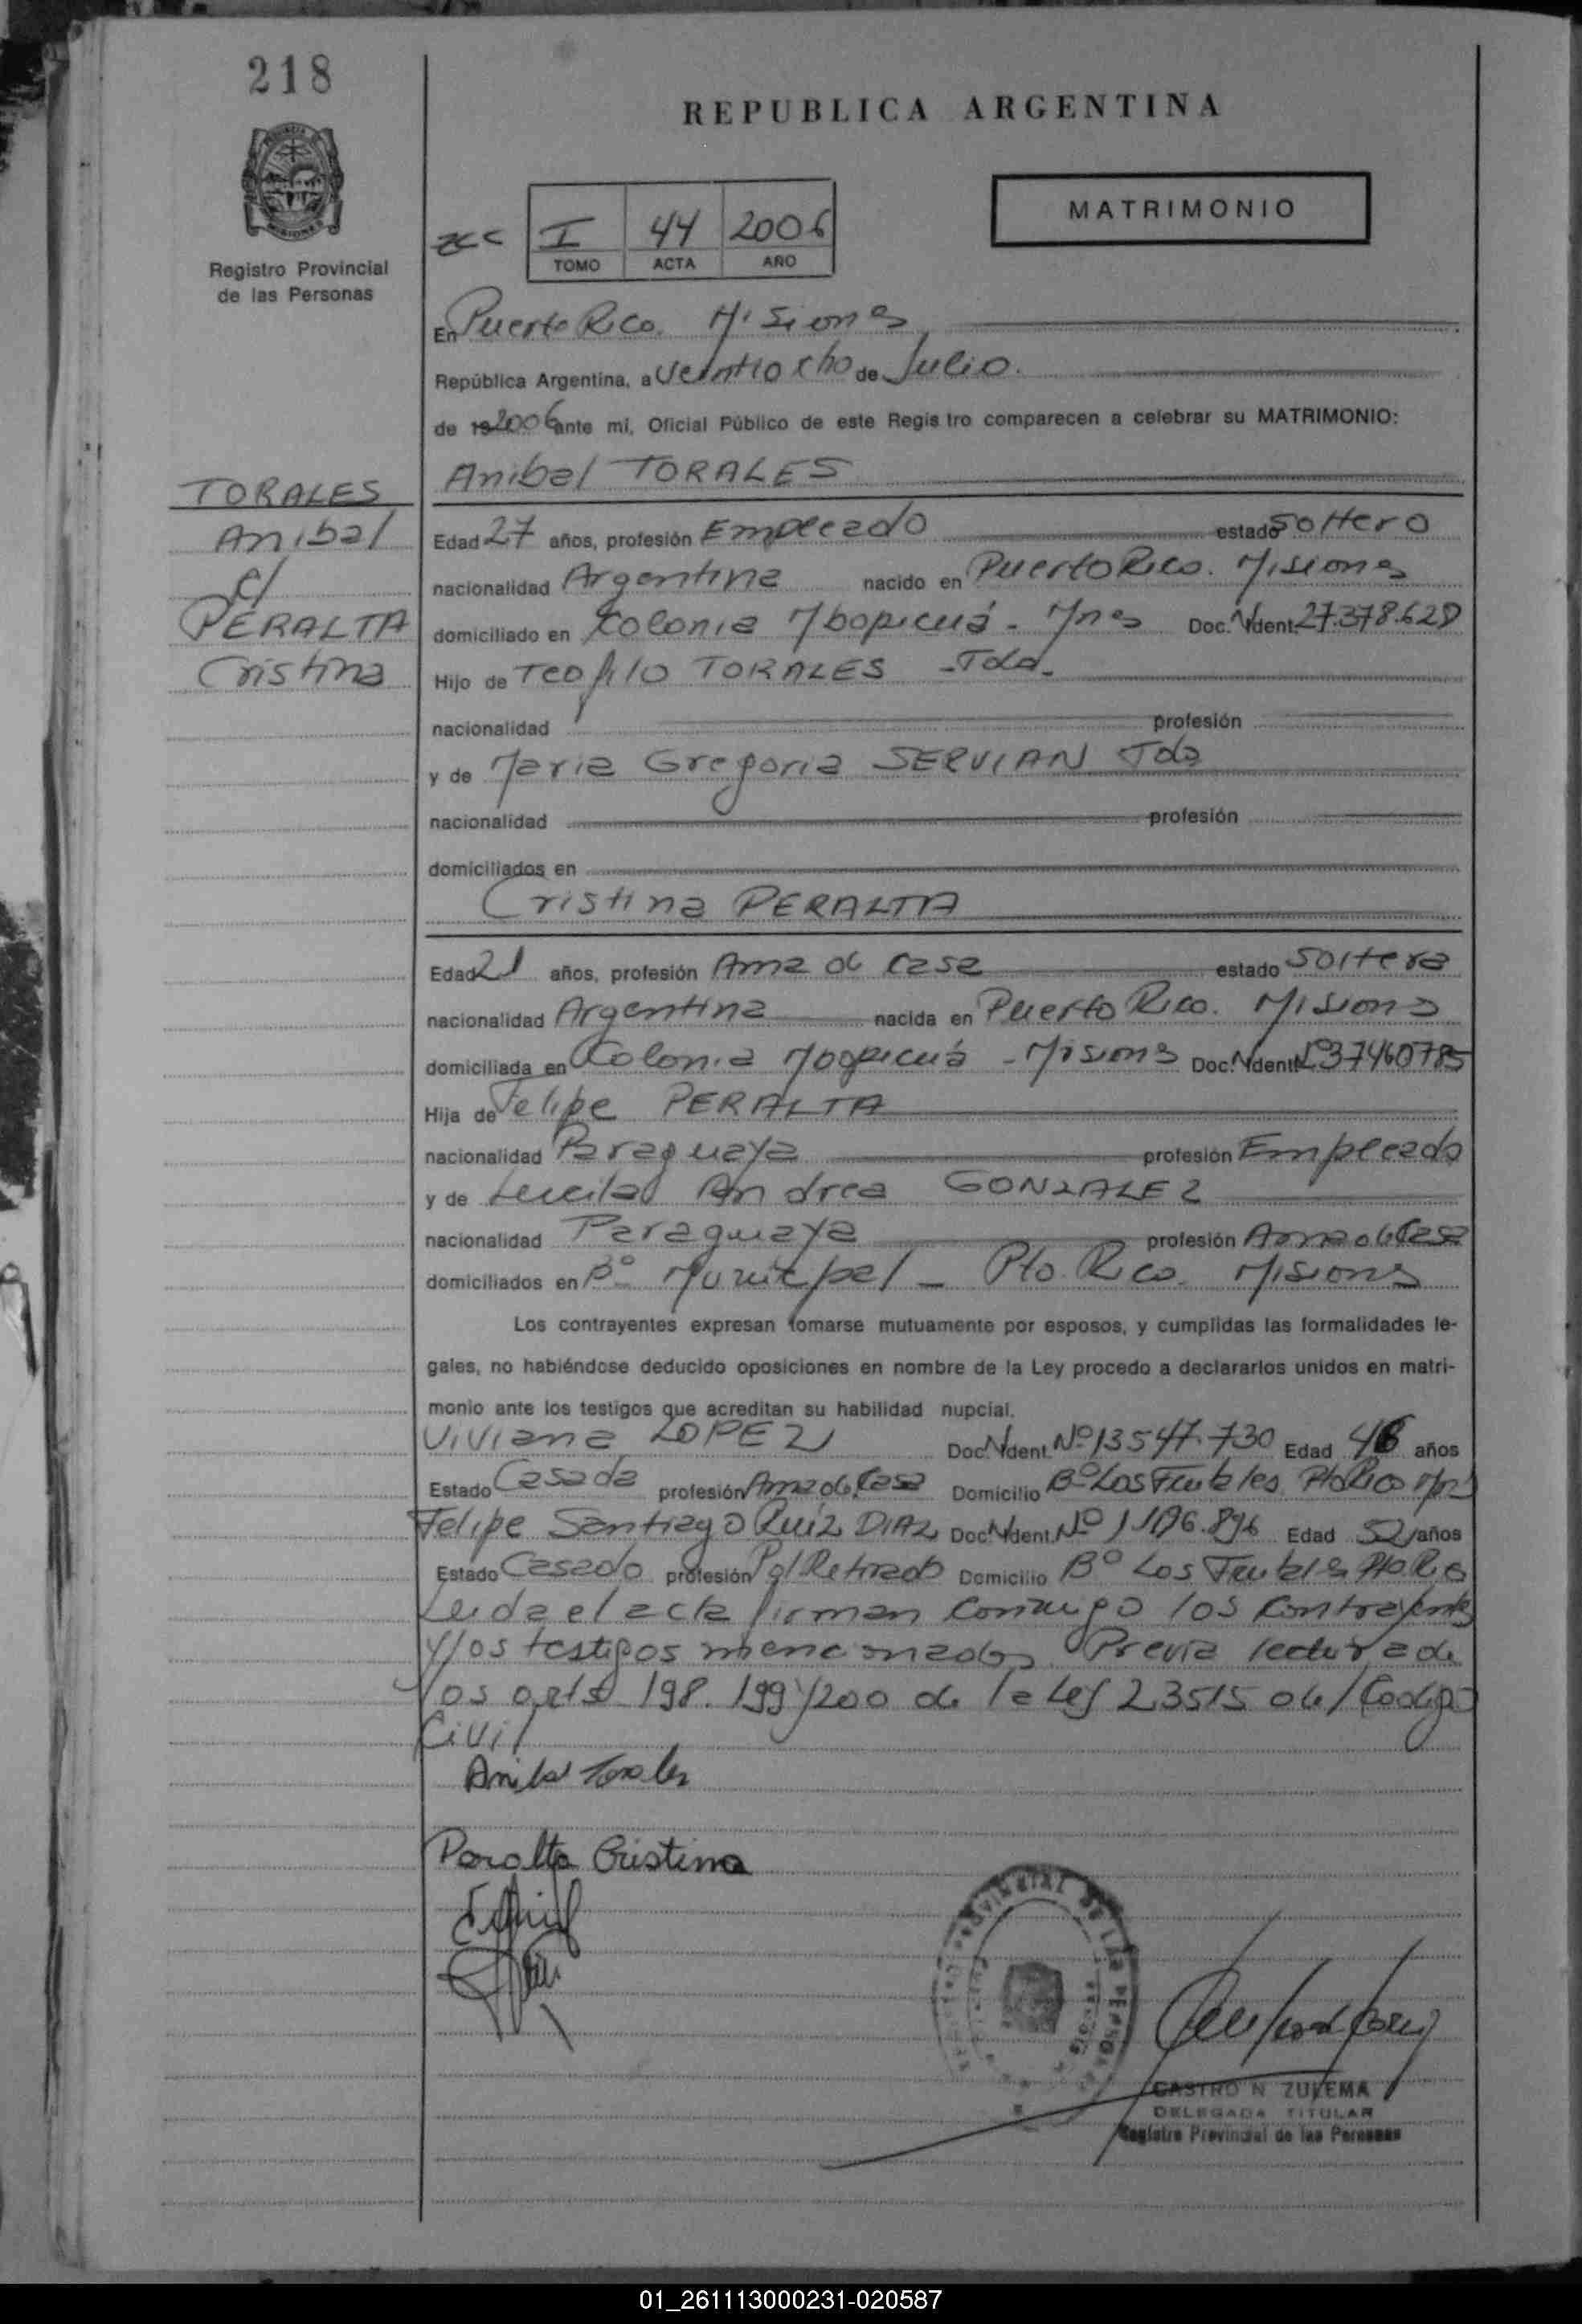 218
REPUBLICA ARGENTINA
MATRIMONIO
I 44 2006
TOMO ACTA AÑO
Registro Provincial
de las Personas
En Puerto Rico. Misiones
República Argentina, a veintiocho de Julio.
de 19 2006 ante mi, Oficial Público de este Regis tro comparecen a celebrar su MATRIMONIO:
TORALES
Anibal
c/
PERALTA
Cristina
Anibal TORALES
Edad 27 años, profesión Empleado estado Soltero
nacionalidad Argentina nacido en Puerto Rico. Misiones
domiciliado en Colonia Mbopicuá - Mnes Doc. Ident. 27.378.628
Hijo de Teofilo TORALES -Tdo-
nacionalidad profesión
y de Maria Gregoria SERVIAN Tda
nacionalidad profesión
domiciliados en
Cristina PERALTA
Edad 21 años, profesión Ama de Casa estado Soltera
nacionalidad Argentina nacida en Puerto Rico. Misiones
domiciliada en Colonia Mbopicuá - Misiones Doc. Ident. Nº 37460785
Hija de Felipe PERALTA
nacionalidad Paraguaya profesión Empleado
y de Lucila Andrea GONZALEZ
nacionalidad Paraguaya profesión Ama de Casa
domiciliados en Bº Municipal - Pto. Rico. Misiones
Los contrayentes expresan tomarse mutuamente por esposos, y cumplidas las formalidades le-
gales, no habiéndose deducido oposiciones en nombre de la Ley procedo a declararlos unidos en matri-
monio ante los testigos que acreditan su habilidad nupcial.
Viviana LOPEZ Doc. Ident. Nº 13547.730 Edad 46 años
Estado Casada profesión Ama de Casa Domicilio Bº Los Frutales Pto Rico Mnes
Felipe Santiago Ruiz DIAZ Doc. Ident. Nº Edad 52 años
Estado Casado profesión Pol Retirado Domicilio Bº Los Frutales Pto Rico
Leida el acta firman conmigo los contrayentes
y los testigos mencionados Previa lectura de
los arts 198. 199 y 200 de la Ley 23515 del Codigo
Civil
Anibal Torales
Peralta Cristina
CASTRO N ZULEMA
DELEGADA TITULAR
Registro Provincial de las Personas
01_261113000231-020587